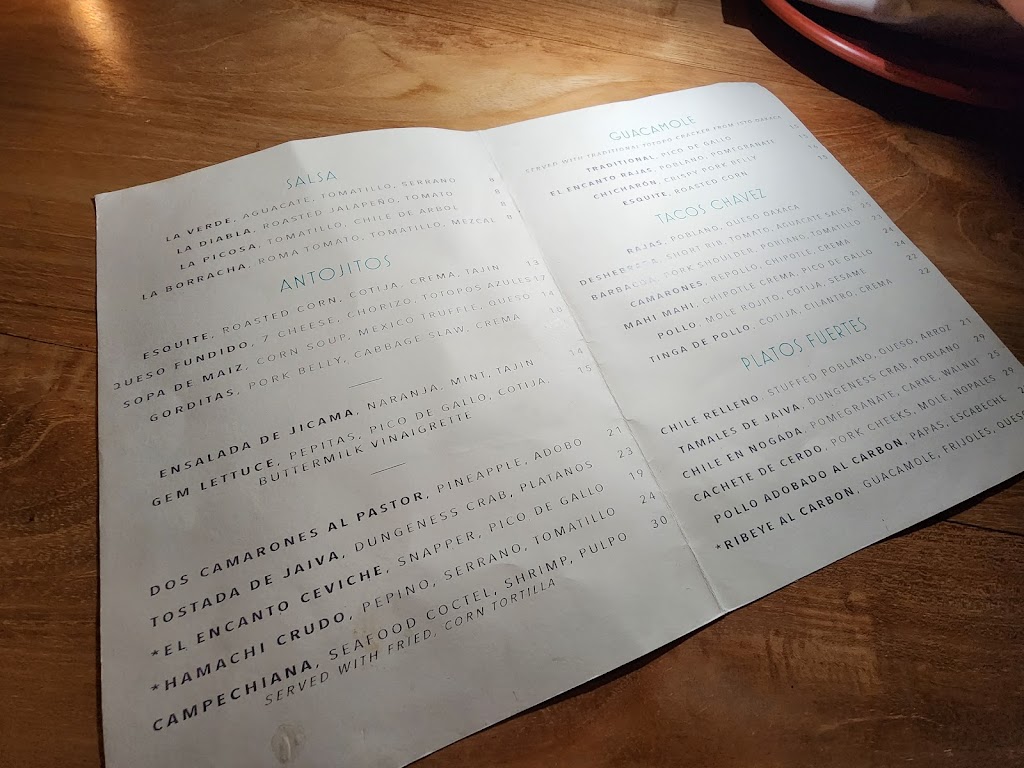 SALSA
LA VERDE, AGUACATE, TOMATILLO, SERRANO 8
LA DIABLA, ROASTED JALAPEÑO, TOMATO 8
LA PICOSA, TOMATILLO, CHILE DE ARBOL 8
LA BORRACHA, ROMA TOMATO, TOMATILLO, MEZCAL 8
ANTOJITOS
ESQUITE, ROASTED CORN, COTIJA, CREMA, TAJIN 13
QUESO FUNDIDO, 7 CHEESE, CHORIZO, TOTOPOS AZULES 17
SOPA DE MAIZ, CORN SOUP, MEXICO TRUFFLE, QUESO 14
GORDITAS, PORK BELLY, CABBAGE SLAW, CREMA
ENSALADA DE JICAMA, NARANJA, MINT, TAJIN 14
GEM LETTUCE, PEPITAS, PICO DE GALLO, COTIJA, 15
BUTTERMILK VINAIGRETTE
DOS CAMARONES AL PASTOR, PINEAPPLE, ADOBO 21
TOSTADA DE JAIVA, DUNGENESS CRAB, PLATANOS 23
*EL ENCANTO CEVICHE, SNAPPER, PICO DE GALLO 19
*HAMACHI CRUDO, PEPINO, SERRANO, TOMATILLO 24
CAMPECHIANA, SEAFOOD COCTEL, SHRIMP, PULPO 30
SERVED WITH FRIED, CORN TORTILLA
GUACAMOLE
SERVED WITH TRADITIONAL TOTOPO CRACKER FROM ITSO OAXACA
TRADITIONAL, PICO DE GALLO
EL ENCANTO RAJAS, POBLANO, POMEGRANATE
CHICHARÓN, CRISPY PORK BELLY
ESQUITE, ROASTED CORN
TACOS CHAVEZ
RAJAS, POBLANO, QUESO OAXACA
DESHEBRADA, SHORT RIB, TOMATO, AGUACATE SALSA
BARBACOA, PORK SHOULDER, POBLANO, TOMATILLO
CAMARONES, REPOLLO, CHIPOTLE, CREMA 24
MAHI MAHI, CHIPOTLE CREMA, PICO DE GALLO 24
POLLO, MOLE ROJITO, COTIJA, SESAME 22
TINGA DE POLLO, COTIJA, CILANTRO, CREMA 22
PLATOS FUERTES
CHILE RELLENO, STUFFED POBLANO, QUESO, ARROZ 21
TAMALES DE JAIVA, DUNGENESS CRAB, POBLANO 29
CHILE EN NOGADA, POMEGRANATE, CARNE, WALNUT 25
CACHETE DE CERDO, PORK CHEEKS, MOLE, NOPALES 25
POLLO ADOBADO AL CARBON, PAPAS, ESCABECHE
*RIBEYE AL CARBON, GUACAMOLE, FRIJOLES, QUESO